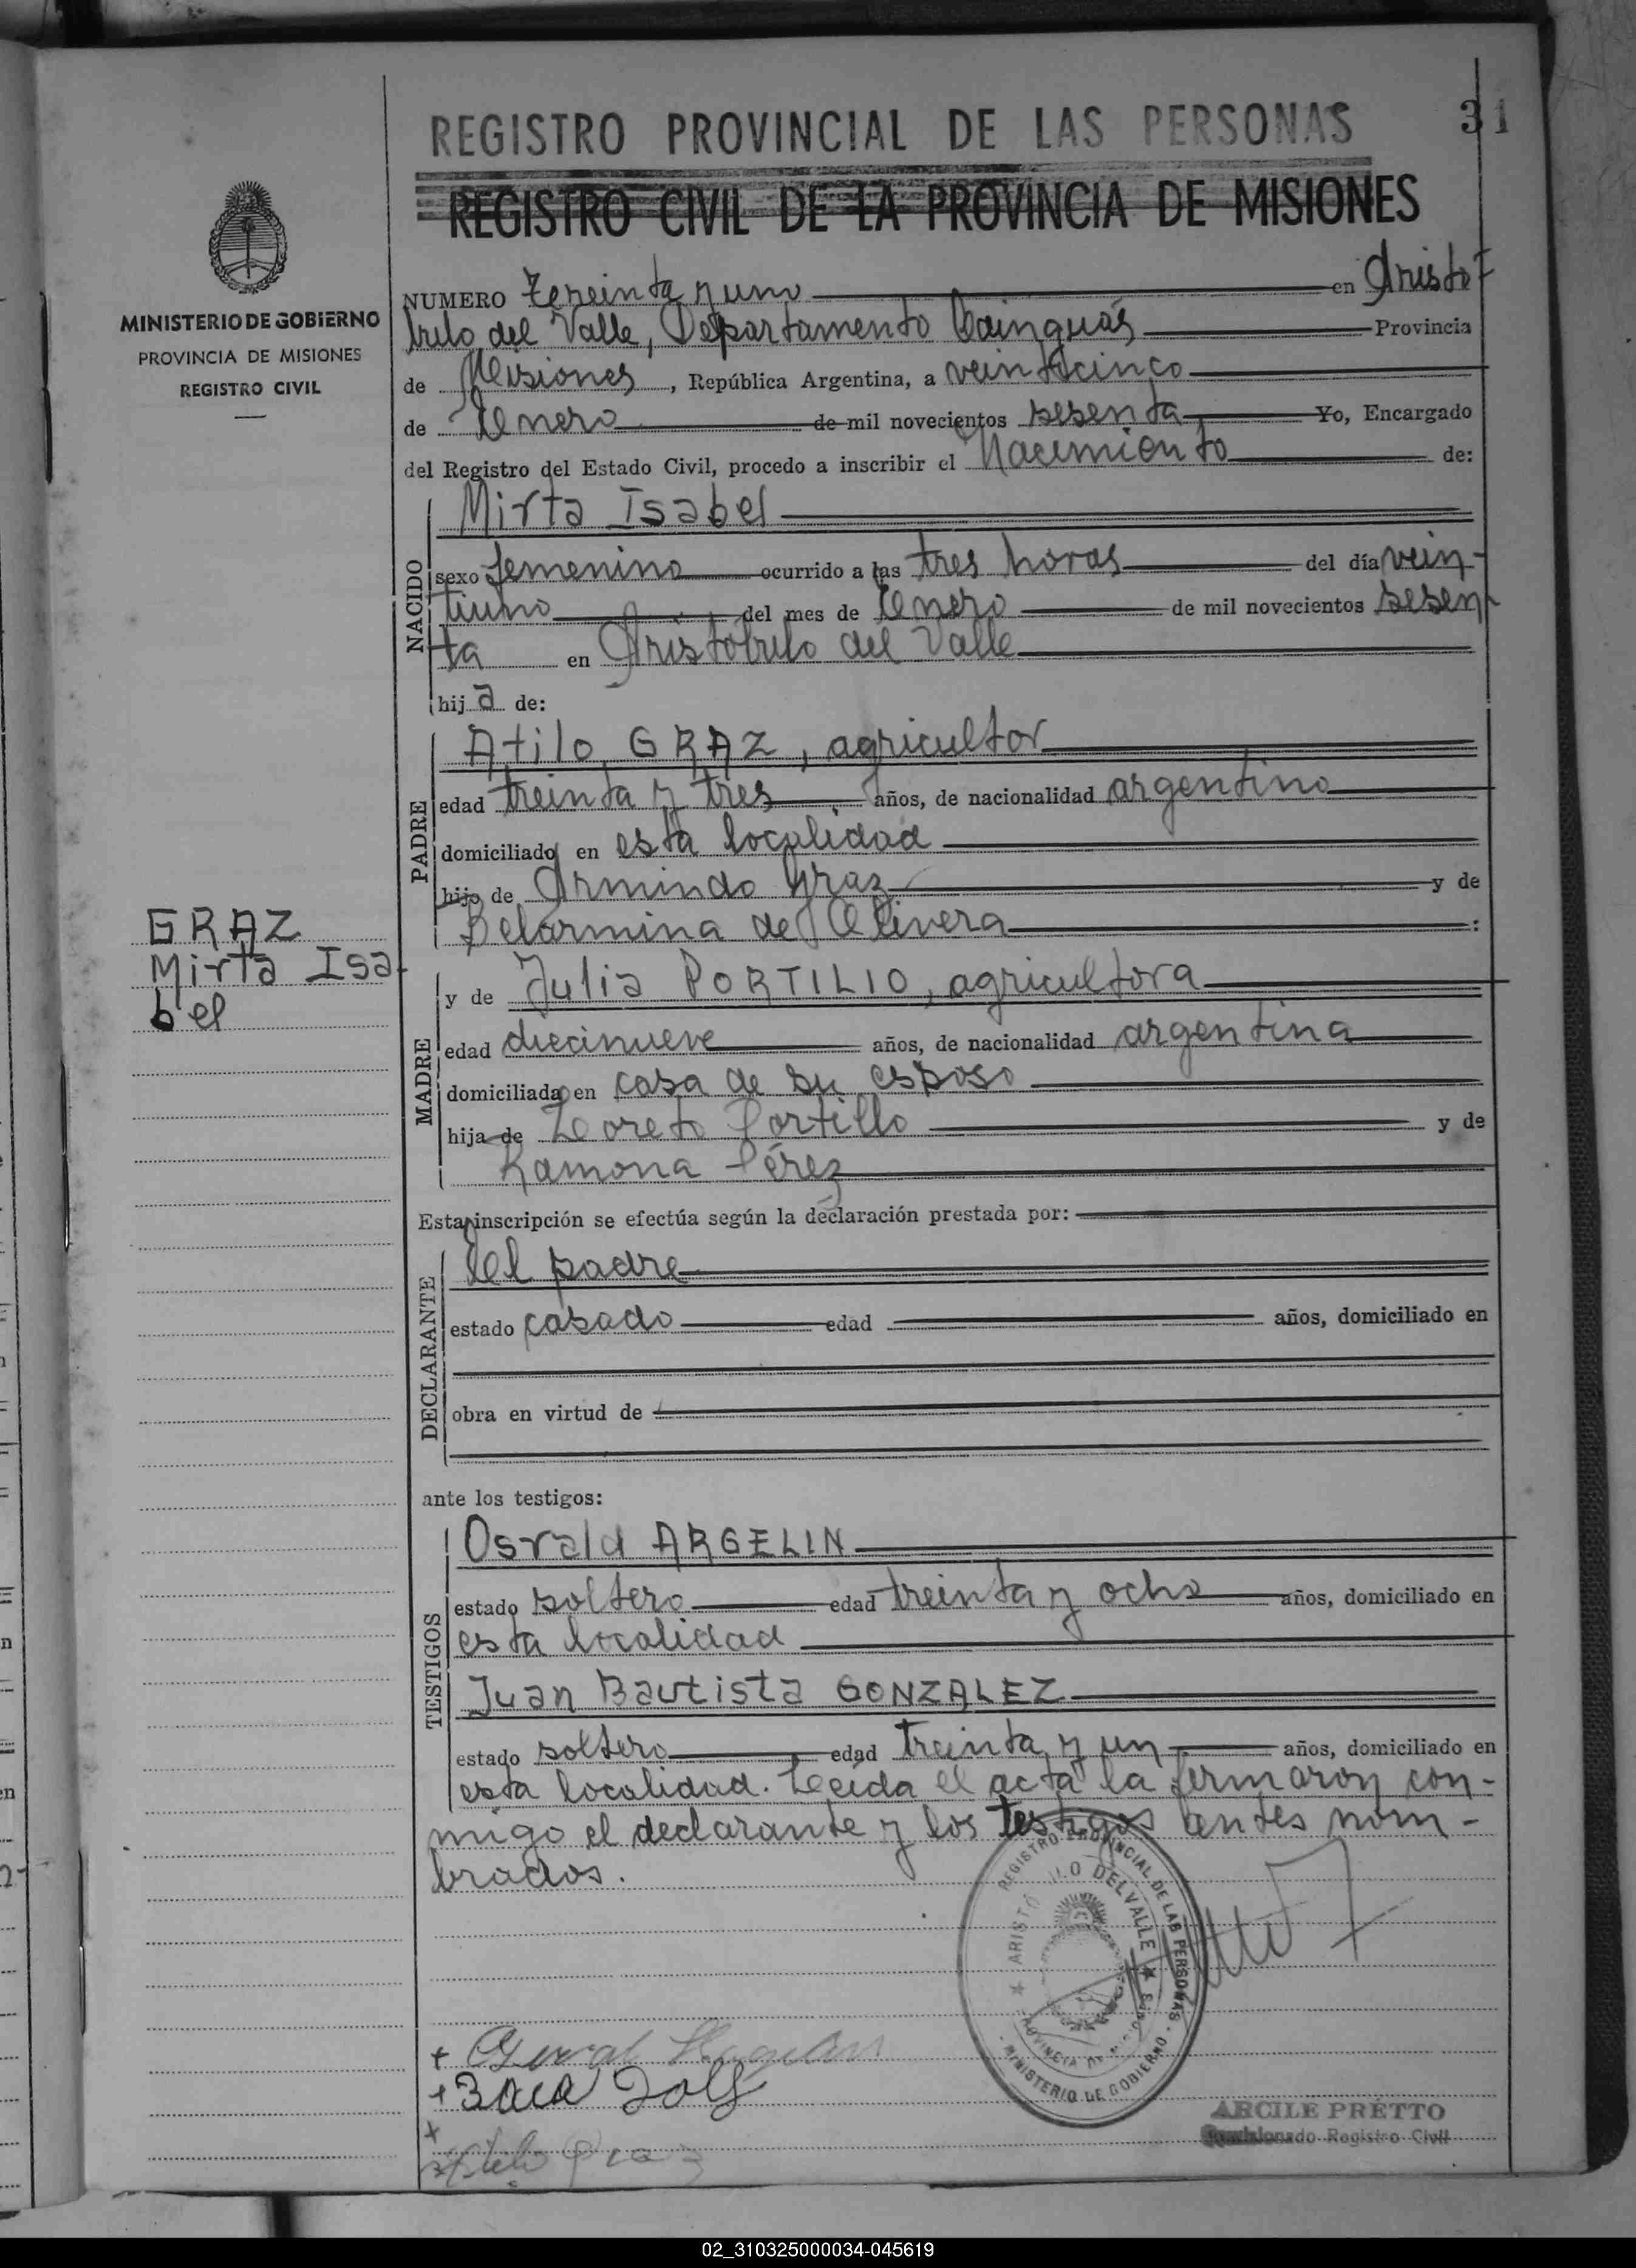 REGISTRO PROVINCIAL DE LAS PERSONAS
31
REGISTRO CIVIL DE LA PROVINCIA DE MISIONES
MINISTERIO DE GOBIERNO
PROVINCIA DE MISIONES
REGISTRO CIVIL
NUMERO treinta y uno en Aristó
bulo del Valle, Departamento Cainguás Provincia
de Misiones, República Argentina, a veinticinco
de Enero de mil novecientos sesenta Yo, Encargado
del Registro del Estado Civil, procedo a inscribir el Nacimiento de:
NACIDO
Mirta Isabel
sexo femenino ocurrido a las tres horas del día vein-
tiuno del mes de Enero de mil novecientos sesen
ta en Aristóbulo del Valle
hija de:
PADRE
Atilo GRAZ, agricultor
edad treinta y tres años, de nacionalidad argentino
domiciliado en esta localidad
hijo de Armindo Graz y de
Belarmina de Olivera :
GRAZ
Mirta Isa
bel
MADRE
y de Julia PORTILIO, agricultora
edad diecinueve años, de nacionalidad argentina
domiciliada en casa de su esposo
hija de Loreto Portillo y de
Ramona Pérez
Esta inscripción se efectúa según la declaración prestada por:
DECLARANTE
del padre
estado casado edad años, domiciliado en
obra en virtud de
ante los testigos:
TESTIGOS
Osvald ARGELIN
estado soltero edad treinta y ocho años, domiciliado en
esta localidad
Juan Bautista GONZALEZ
estado soltero edad treinta y un años, domiciliado en
esta localidad. Leeida el acta la firmaron con-
migo el declarante y los testigos antes nom-
brados.
REGISTRO PROVINCIAL DE LAS PERSONAS
MINISTERIO DE GOBIERNO
DEL VALLE
ARCILE PRETTO
Registro Civil
Atilo Graz
02_310325000034-045619